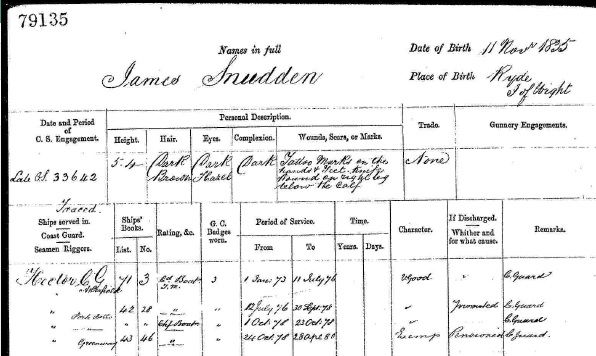 79135
Names in full
Date of Birth 11 Novr 1835
James Snudden
Place of Birth Ryde
I of Wight
Date and Period of C. S. Engagement.
Personal Description.
Trade.
Gunnery Engagements.
Height. Hair. Eyes. Complexion. Wounds, Scars, or Marks.
Late CS. 33642
5-4 Dark Brown Dark Hazel Dark Tattoo Marks on the hands & Feet. Knife Wound on right leg below the Calf None
Traced.
Ships served in.
Coast Guard.
Seamen Riggers.
Ships' Books. List. No.
Rating, &c.
G. C. Badges worn.
Period of Service. From To
Time. Years. Days.
Character.
If Discharged. Whither and for what cause.
Remarks.
Hector C G 71 3 Boatn 3 1 Jany 73 11 July 76 VGood " C. Guard
" 42 28 " " 12 July 76 30 Sept. 78 " C. Guard
" " Chf Boatn " 1 Oct. 78 23 Oct. 78 " C. Guard
" Greenway 43 46 " " 24 Oct 78 28 Apl 80 Exemp Pensioned C. Guard.